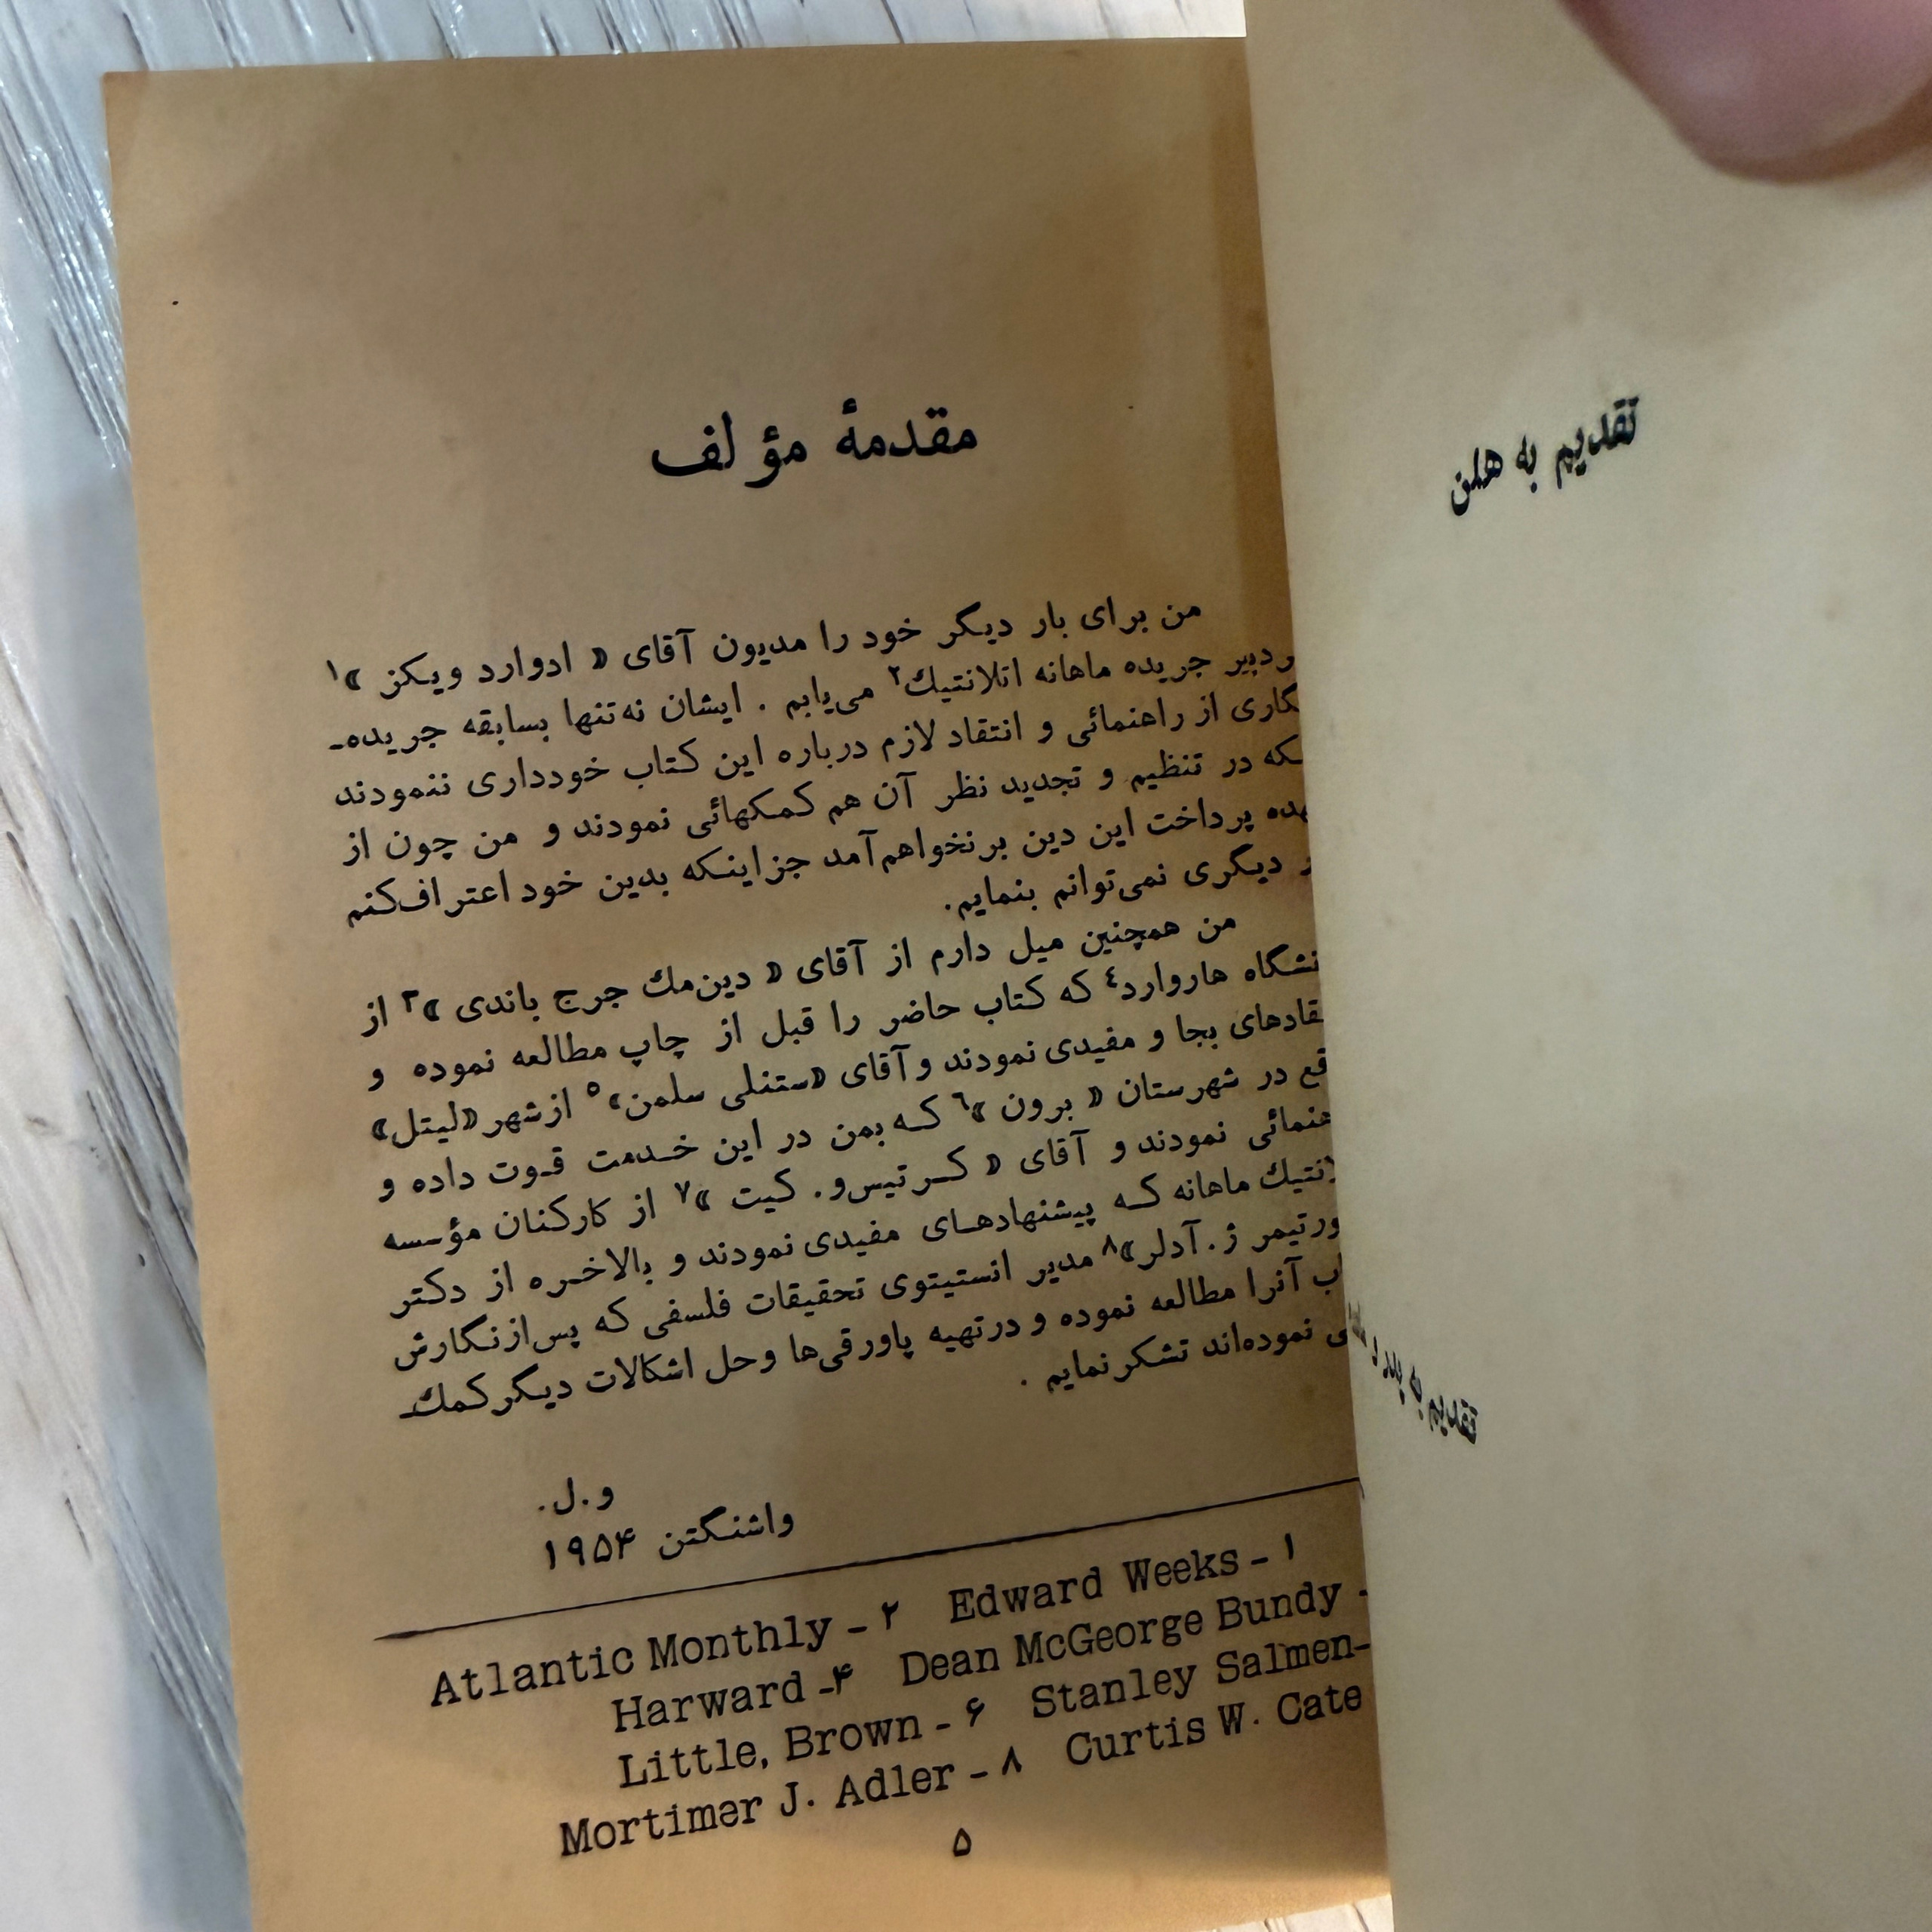 تقدیم به هلن
مقدمهٔ مؤلف
من برای بار دیگر خود را مدیون آقای «ادوارد ویکز»۱
جریده ماهانه اتلانتیك۲ می‌یابم . ایشان نه‌تنها بسابقه جریده‌ـ
از راهنمائی و انتقاد لازم درباره این کتاب خودداری ننمودند
در تنظیم و تجدید نظر آن هم کمکهائی نمودند و من چون از
پرداخت این دین برنخواهم‌آمد جزاینکه بدین خود اعتراف‌کنم
دیگری نمی‌توانم بنمایم.
من همچنین میل دارم از آقای «دین‌مك جرج باندی»۳ از
هاروارد٤ که کتاب حاضر را قبل از چاپ مطالعه نموده و
بجا و مفیدی نمودند و آقای «ستنلی سلمن»۵ ازشهر «لیتل»
در شهرستان «برون»٦ که بمن در این خدمت قوت داده و
نمودند و آقای «کرتیس‌و. کیت»۷ از کارکنان مؤسسه
ماهانه که پیشنهادهای مفیدی نمودند و بالاخره از دکتر
ژ.آدلر»۸ مدیر انستیتوی تحقیقات فلسفی که پس‌ازنگارش
آنرا مطالعه نموده و درتهیه پاورقی‌ها وحل اشکالات دیگرکمك‌ـ
نموده‌اند تشکرنمایم .
و.ل.
واشنگتن ۱۹۵۴
۱ - Edward Weeks ۲ - Atlantic Monthly
Dean McGeorge Bundy ۴ـ Harward
Stanley Salmen ۶ - Little, Brown
Curtis W. Cate ۸ - Mortimer J. Adler
۵